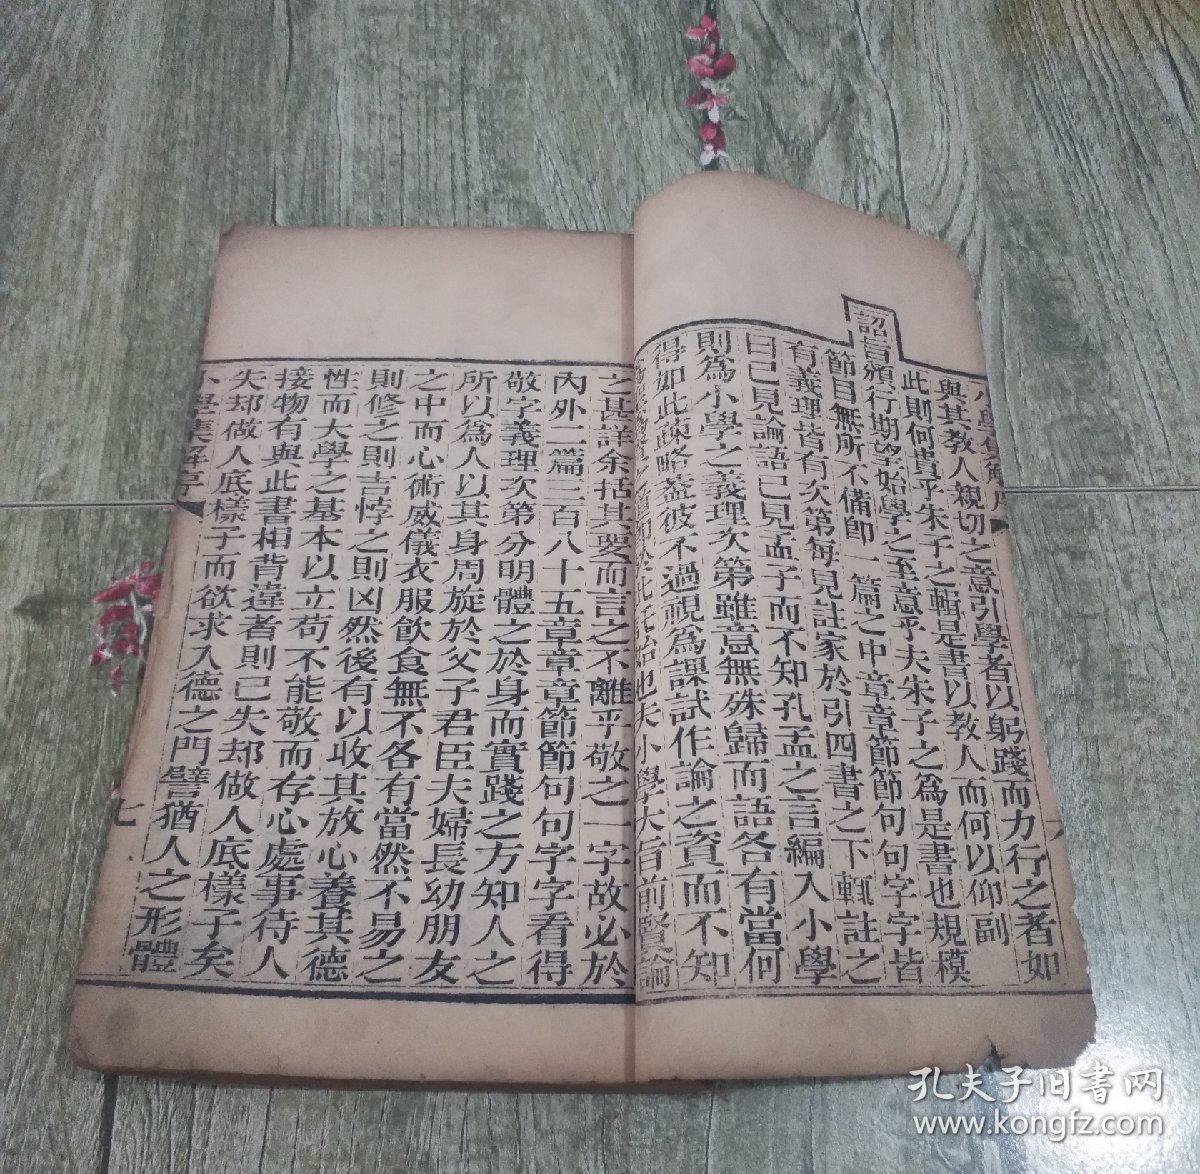 與其教人親切之意引學者以躬踐而力行之者如
此則何貴乎朱子之輯是書以教人而何以仰副
詔旨頒行期望始學之至意乎夫朱子之為是書也規模
節目無所不備即一篇之中章章節節句句字字皆
有義理皆有次第每見註家於引四書之下輒註之
曰已見論語已見孟子而不知孔孟之言編入小學
則為小學之義理次第雖意無殊歸而語各有當何
得如此疎略蓋彼不過視為課試作論之資而不知
也夫小學大旨前賢論
之甚詳余括其要而言之不離乎敬之一字故必於
內外二篇三百八十五章章章節節句句字字看得
敬字義理次第分明體之於身而實踐之方知人之
所以為人以其身周旋於父子君臣夫婦長幼朋友
之中而心術威儀衣服飲食無不各有當然不易之
則修之則吉悖之則凶然後有以收其放心養其德
性而大學之基本以立苟不能敬而存心處事待人
接物有與此書相背違者則已失却做人底樣子矣
失却做人底樣子而欲求入德之門譬猶人之形體
小學集解序
七
孔夫子旧書网
www.kongfz.com